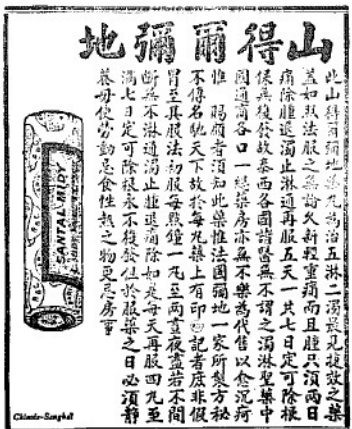 山得爾彌地
此山得爾彌地藥丸為治五淋二濁最見捷效之藥
蓋如照法服之無論久新輕重痛而且腫只須兩日
痛除腫退濁止淋通再服五天一共七日定可除根
無復發故泰西各國諸醫無不謂之濁淋聖藥中
國通商各口一經藥房亦無不樂為代售以愈沉疴
惟 賜顧者須知此藥惟法國彌地一家所製方秘
不傳名馳天下故於每丸藥上有印記者庶非假
冒至其服法初服每點鐘一丸至兩晝夜盡若不間
斷無不淋通濁止腫退痛除如是每天再服四丸至
滿七日定可除根永不復發但於服藥之日必須靜
養毋使勞動忌食性熱之物更忌房事
SANTAL MIDY
Chinois-Sanghaï